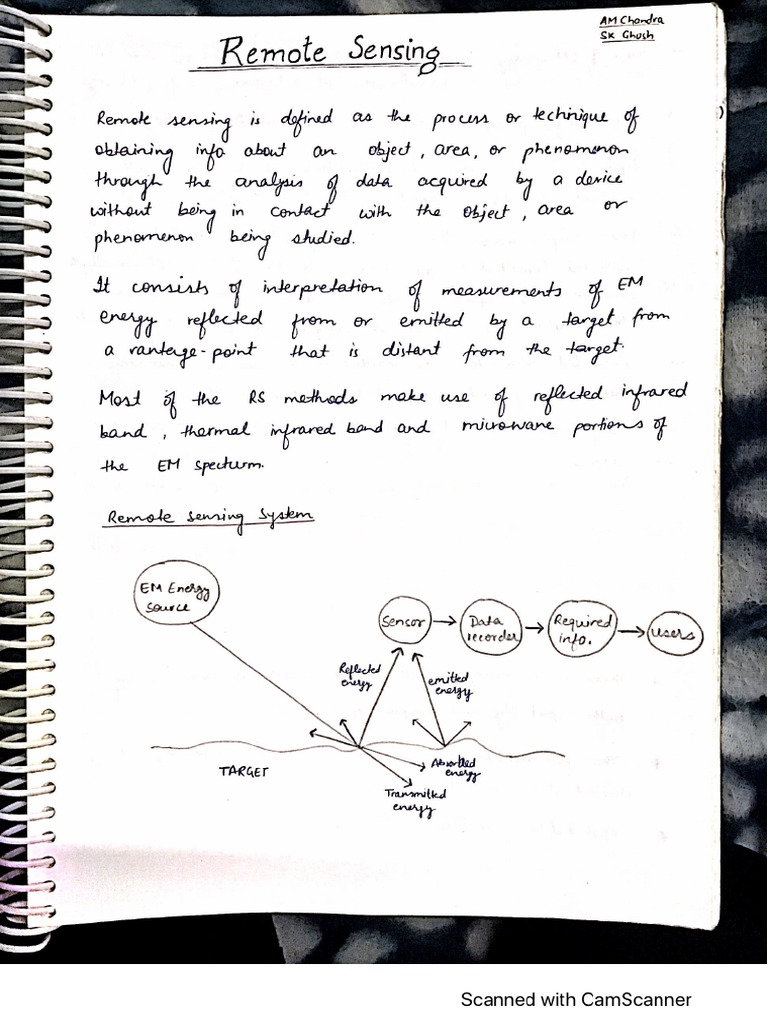 AM Chandra
SK Ghosh
Remote Sensing
Remote sensing is defined as the process or technique of
obtaining info about an object, area, or phenomenon
through the analysis of data acquired by a device
without being in contact with the object, area or
phenomenon being studied.
It consists of interpretation of measurements of EM
energy reflected from or emitted by a target from
a vantage-point that is distant from the target.
Most of the RS methods make use of reflected infrared
band, thermal infrared band and microwave portions of
the EM specturm.
Remote Sensing System
EM Energy
Source
Sensor
Data
recorder
Required
info.
Users
Reflected
energy
emitted
energy
TARGET
Absorbed
energy
Transmitted
energy
Scanned with CamScanner